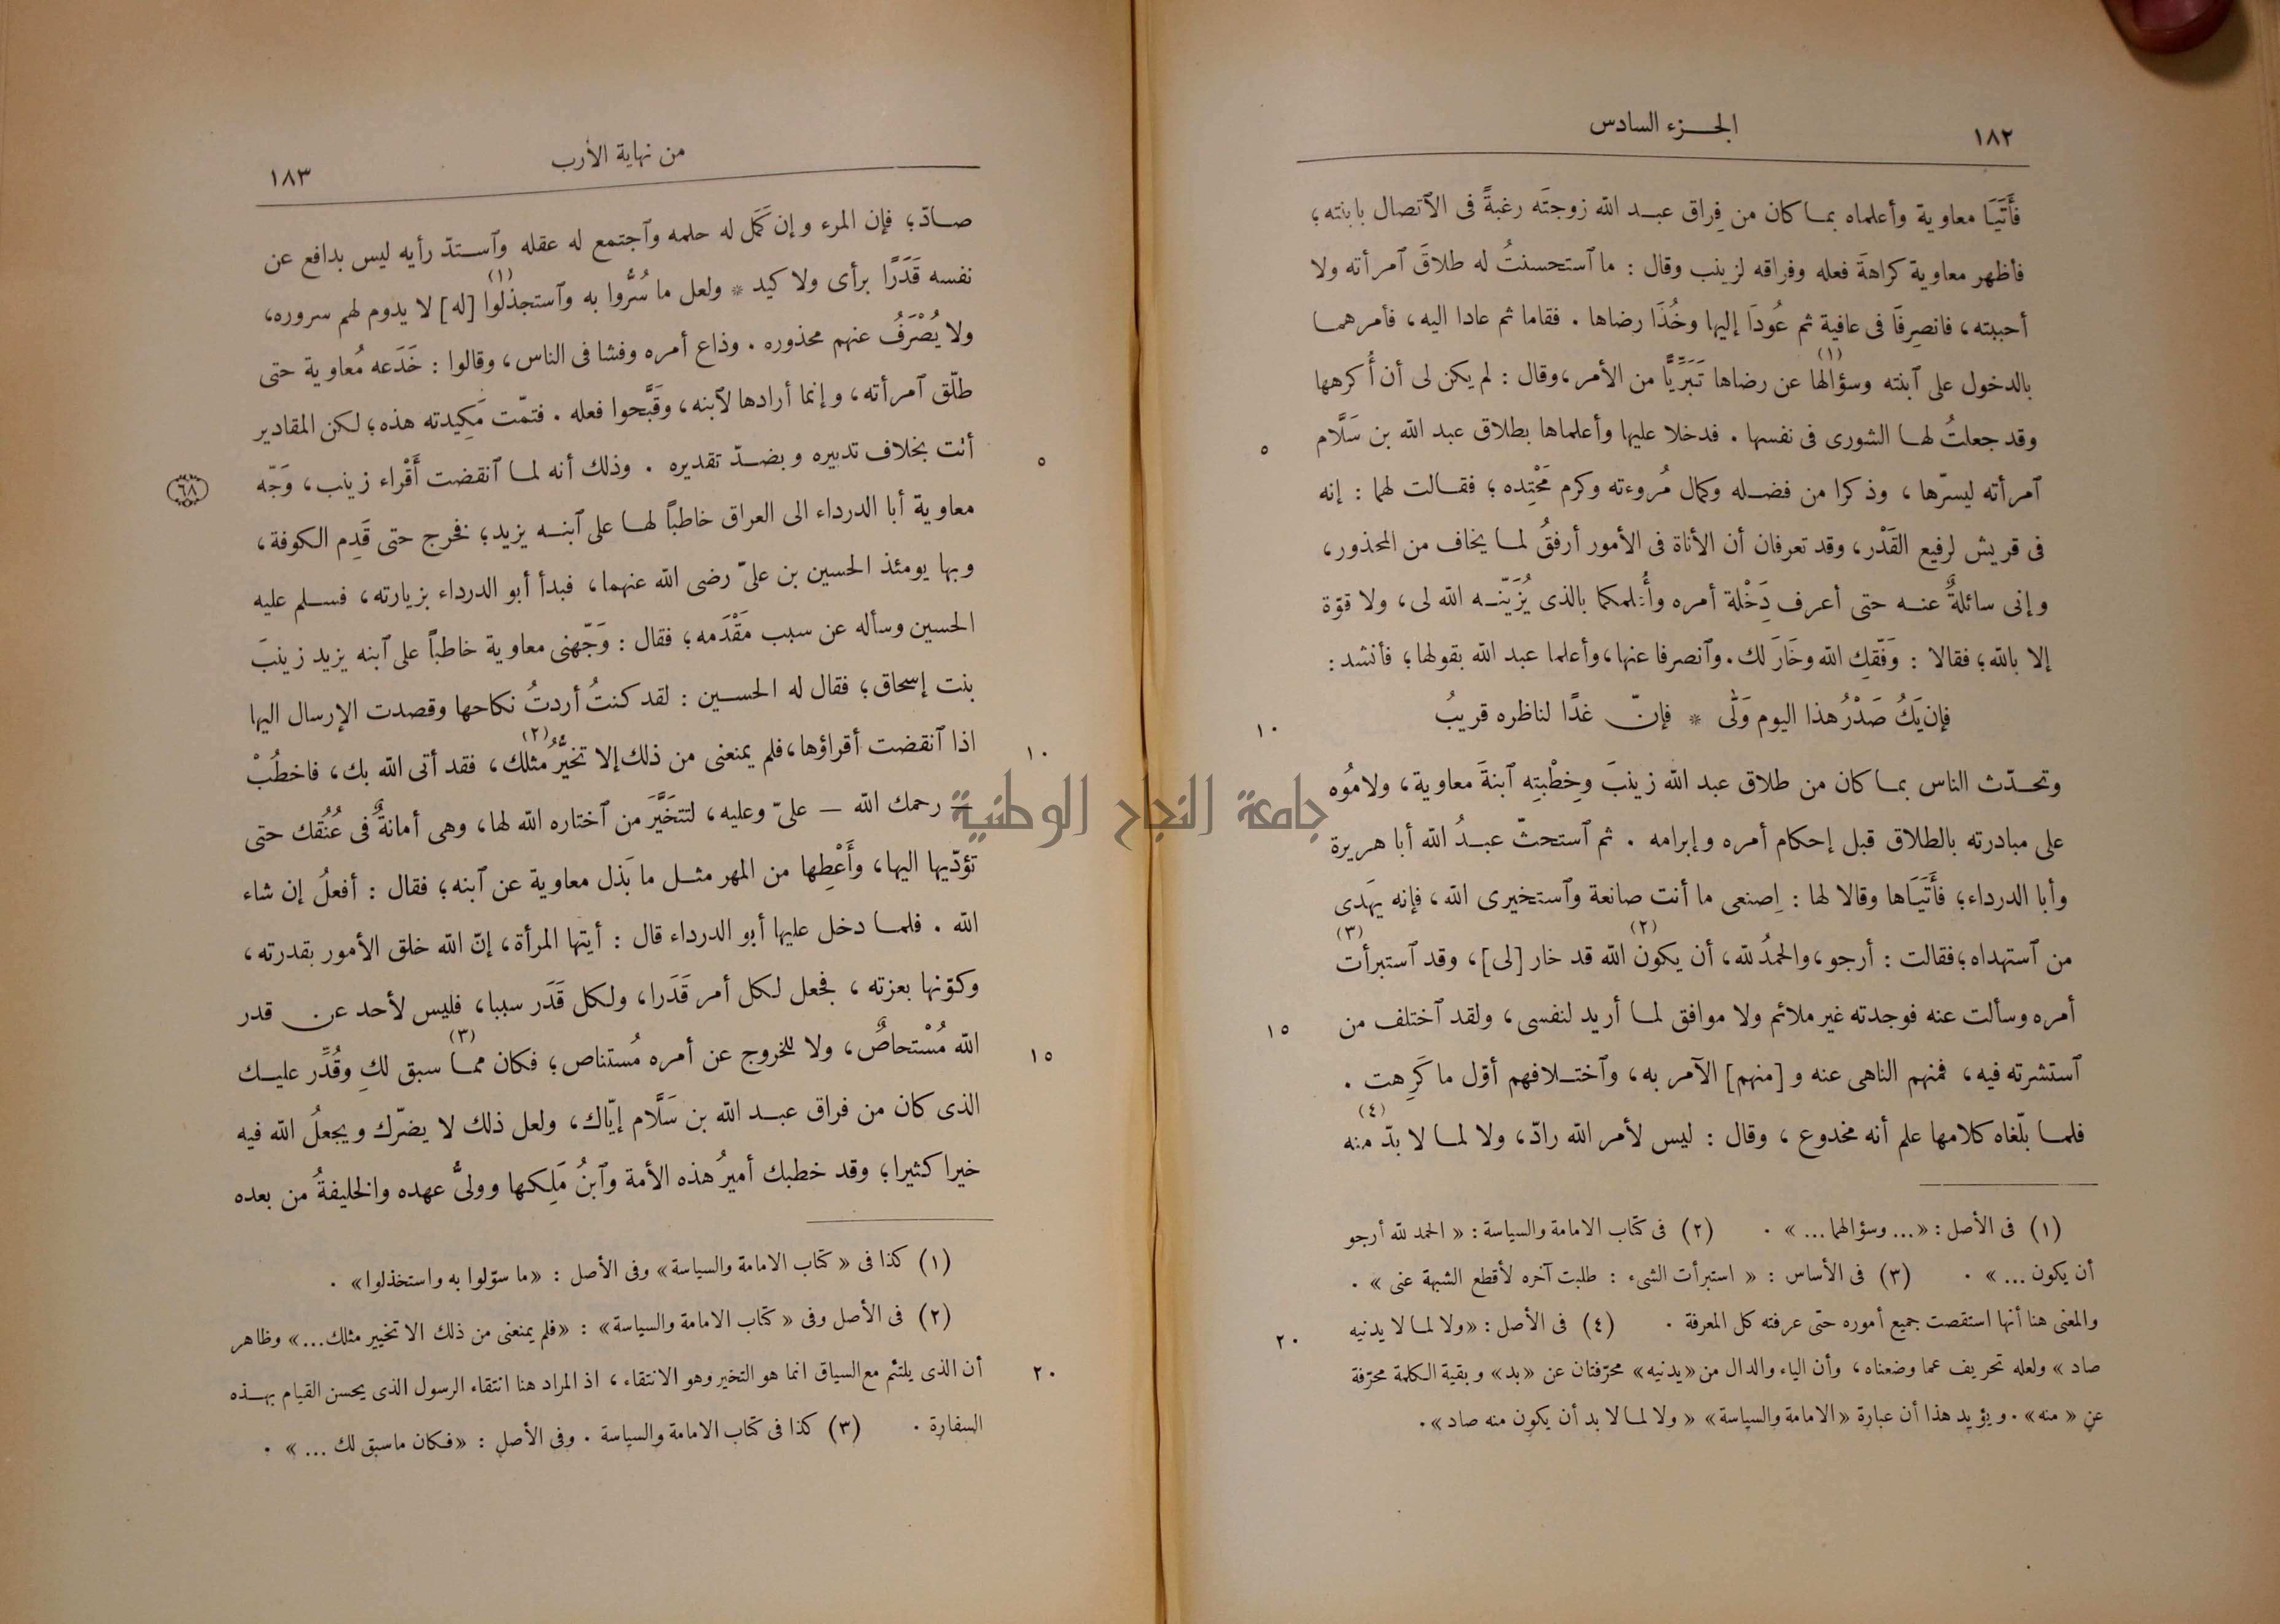 ١٨٢
الجــزء السادس
فَأَتَيَا معاوية وأعلماه بمـا كان من فِراق عبـد الله زوجتَه رغبةً فى الآتصال بابنته؛
فأظهر معاوية كراهةَ فعله وفراقه لزينب وقال : ما آستحسنتُ له طلاقَ آمرأته ولا
أحببته، فانصرِفَا فى عافية ثم عُودَا إليها وخُذَا رضاها . فقاما ثم عادا اليه، فأمرهمـا
بالدخول على آبنته وسؤالها (١) عن رضاها تَبَرِّيًّا من الأمر، وقال : لم يكن لى أن أُكرهها
وقد جعلتُ لهـا الشورى فى نفسها . فدخلا عليها وأعلماها بطلاق عبد الله بن سَلَّام
٥
آمرأته ليسرّها ، وذكرا من فضـله وكمال مُروءته وكرم مَحْتِده ؛ فقـالت لهما : إنه
فى قريش لرفيع القَدْر، وقد تعرفان أن الأناة فى الأمور أرفقُ لمـا يخاف من المحذور،
وإنى سائلةٌ عنـه حتى أعرف دِخْلة أمره وأُعلمكما بالذى يُزَيّنـه الله لى، ولا قوّة
إلا بالله؛ فقالا : وَفّقكِ الله وخَارَ لك. وآنصرفا عنها، وأعلما عبد الله بقولها؛ فأنشد :
فإن يَكُ صَدْرُ هذا اليوم وَلّى * فإنّ غدًا لناظره قريبُ
١٠
وتحـدّث الناس بمـا كان من طلاق عبد الله زينبَ وخِطْبتِه آبنةَ معاوية، ولامُوه
على مبادرته بالطلاق قبل إحكام أمره وإبرامه . ثم آستحثّ عبـدُ الله أبا هريرة
وأبا الدرداء؛ فأَتَيَاها وقالا لها : اِصنعى ما أنت صانعة وآستخيرى الله، فإنه يَهدى
من آستهداه؛ فقالت : أرجو، والحمدُ لله، أن يكون (٢) الله قد خار [لى]، وقد آستبرأت (٣)
أمره وسألت عنه فوجدته غير ملائم ولا موافق لمـا أريد لنفسى، ولقد آختلف من
١٥
آستشرته فيه، فمنهم الناهى عنه و [منهم] الآمر به، وآختـلافهم أوّل ما كَرِهت .
فلمـا بلّغاه كلامها علم أنه مخدوع ، وقال : ليس لأمر الله رادّ، ولا لمـا لا بدّ منه (٤)
(١) فى الأصل : «... وسؤالهما ...» . (٢) فى كتاب الامامة والسياسة : « الحمد لله أرجو
أن يكون ...» . (٣) فى الأساس : « استبرأت الشىء : طلبت آخره لأقطع الشبهة عنى » .
والمعنى هنا أنها استقصت جميع أموره حتى عرفته كل المعرفة . (٤) فى الأصل : «ولا لمـا لا يدنيه
٢٠
صاد » ولعله تحريف عما وضعناه، وأن الياء والدال من «يدنيه» محرّفتان عن «بد» وبقية الكلمة محرّفة
عن « منه» . ويؤيد هذا أن عبارة «الامامة والسياسة» « ولا لمـا لا بد أن يكون منه صاد» .
من نهاية الأرب
١٨٣
صـادّ؛ فإن المرء وإن كَمَل له حلمه وآجتمع له عقله وآسـتدّ رأيه ليس بدافع عن
نفسه قَدَرًا برأى ولا كيد * ولعل ما سُرُّوا به وآستجذلوا (١) [له] لا يدوم لهم سروره،
ولا يُصْرَفُ عنهم محذوره . وذاع أمره وفشا فى الناس، وقالوا : خَدَعه مُعاوية حتى
طلّق آمرأته، وإنما أرادها لآبنه، وقَبَّحوا فعله . فتمّت مَكِيدته هذه؛ لكن المقادير
أتت بخلاف تدبيره وبضـدّ تقديره . وذلك أنه لمـا آنقضت أَقْراء زينب، وَجّه
٥
٦٨
معاوية أبا الدرداء الى العراق خاطباً لهـا على آبنـه يزيد؛ فخرج حتى قَدِم الكوفة،
وبها يومئذ الحسين بن علىّ رضى الله عنهما، فبدأ أبو الدرداء بزيارته، فسـلم عليه
الحسين وسأله عن سبب مَقْدَمه؛ فقال : وَجّهنى معاوية خاطباً على آبنه يزيد زينبَ
بنت إسحاق؛ فقال له الحسـين : لقد كنتُ أردتُ نكاحها وقصدت الإرسال اليها
اذا آنقضت أقراؤها، فلم يمنعنى من ذلك إلا تخيُّرُ مثلك (٢)، فقد أتى الله بك، فاخطُبْ
١٠
– رحمك الله – علىّ وعليه، لتتخَيَّر من آختاره الله لها، وهى أمانةٌ فى عُنُقك حتى
تؤدّيها اليها، وأَعْطِها من المهر مثـل ما بَذل معاوية عن آبنه؛ فقال : أفعلُ إن شاء
الله . فلمـا دخل عليها أبو الدرداء قال : أيتها المرأة، إنّ الله خلق الأمور بقدرته،
وكوّنها بعزته ، فجعل لكل أمر قَدَرا، ولكل قَدَر سببا، فليس لأحد عن قدر
الله مُسْتحاصٌ، ولا للخروج عن أمره مُستناص؛ فكان ممـا (٣) سبق لكِ وقُدِّر عليـك
١٥
الذى كان من فراق عبـد الله بن سَلَّام إيّاك، ولعل ذلك لا يضرّك ويجعلُ الله فيه
خيرا كثيرا؛ وقد خطبك أميرُ هذه الأمة وآبنُ مَلِكها وولىُّ عهده والخليفةُ من بعده
(١) كذا فى « كتاب الامامة والسياسة» وفى الأصل : «ما سوّلوا به واستخذلوا» .
(٢) فى الأصل وفى « كتاب الامامة والسياسة» : «فلم يمنعنى من ذلك الا تخيير مثلك...» وظاهر
أن الذى يلتئم مع السياق انما هو التخير وهو الانتقاء، اذ المراد هنا انتقاء الرسول الذى يحسن القيام بهـذه
٢٠
السفارة . (٣) كذا فى كتاب الامامة والسياسة . وفى الأصل : «فكان ماسبق لك ...» .
جامعة النجاح الوطنية